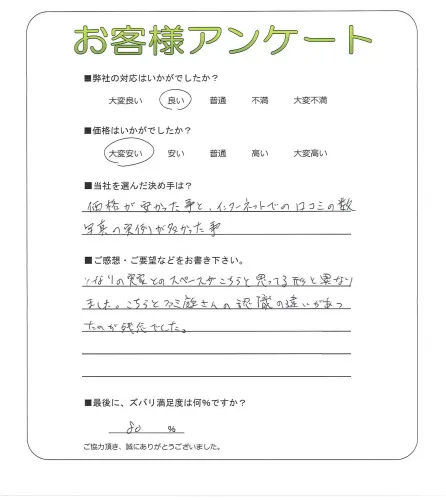 お客様アンケート
■弊社の対応はいかがでしたか？
大変良い 良い 普通 不満 大変不満
■価格はいかがでしたか？
大変安い 安い 普通 高い 大変高い
■当社を選んだ決め手は？
価格が安かった事と、インターネットでの口コミの数
写真の実例が多かった事
■ご感想・ご要望などをお書き下さい。
となりの実家とのスペースがこちらと思ってる形と異なり
ました。こちらと さんの認識の違いがあっ
たのが残念でした。
■最後に、ズバリ満足度は何％ですか？
80 %
ご協力頂き、誠にありがとうございました。